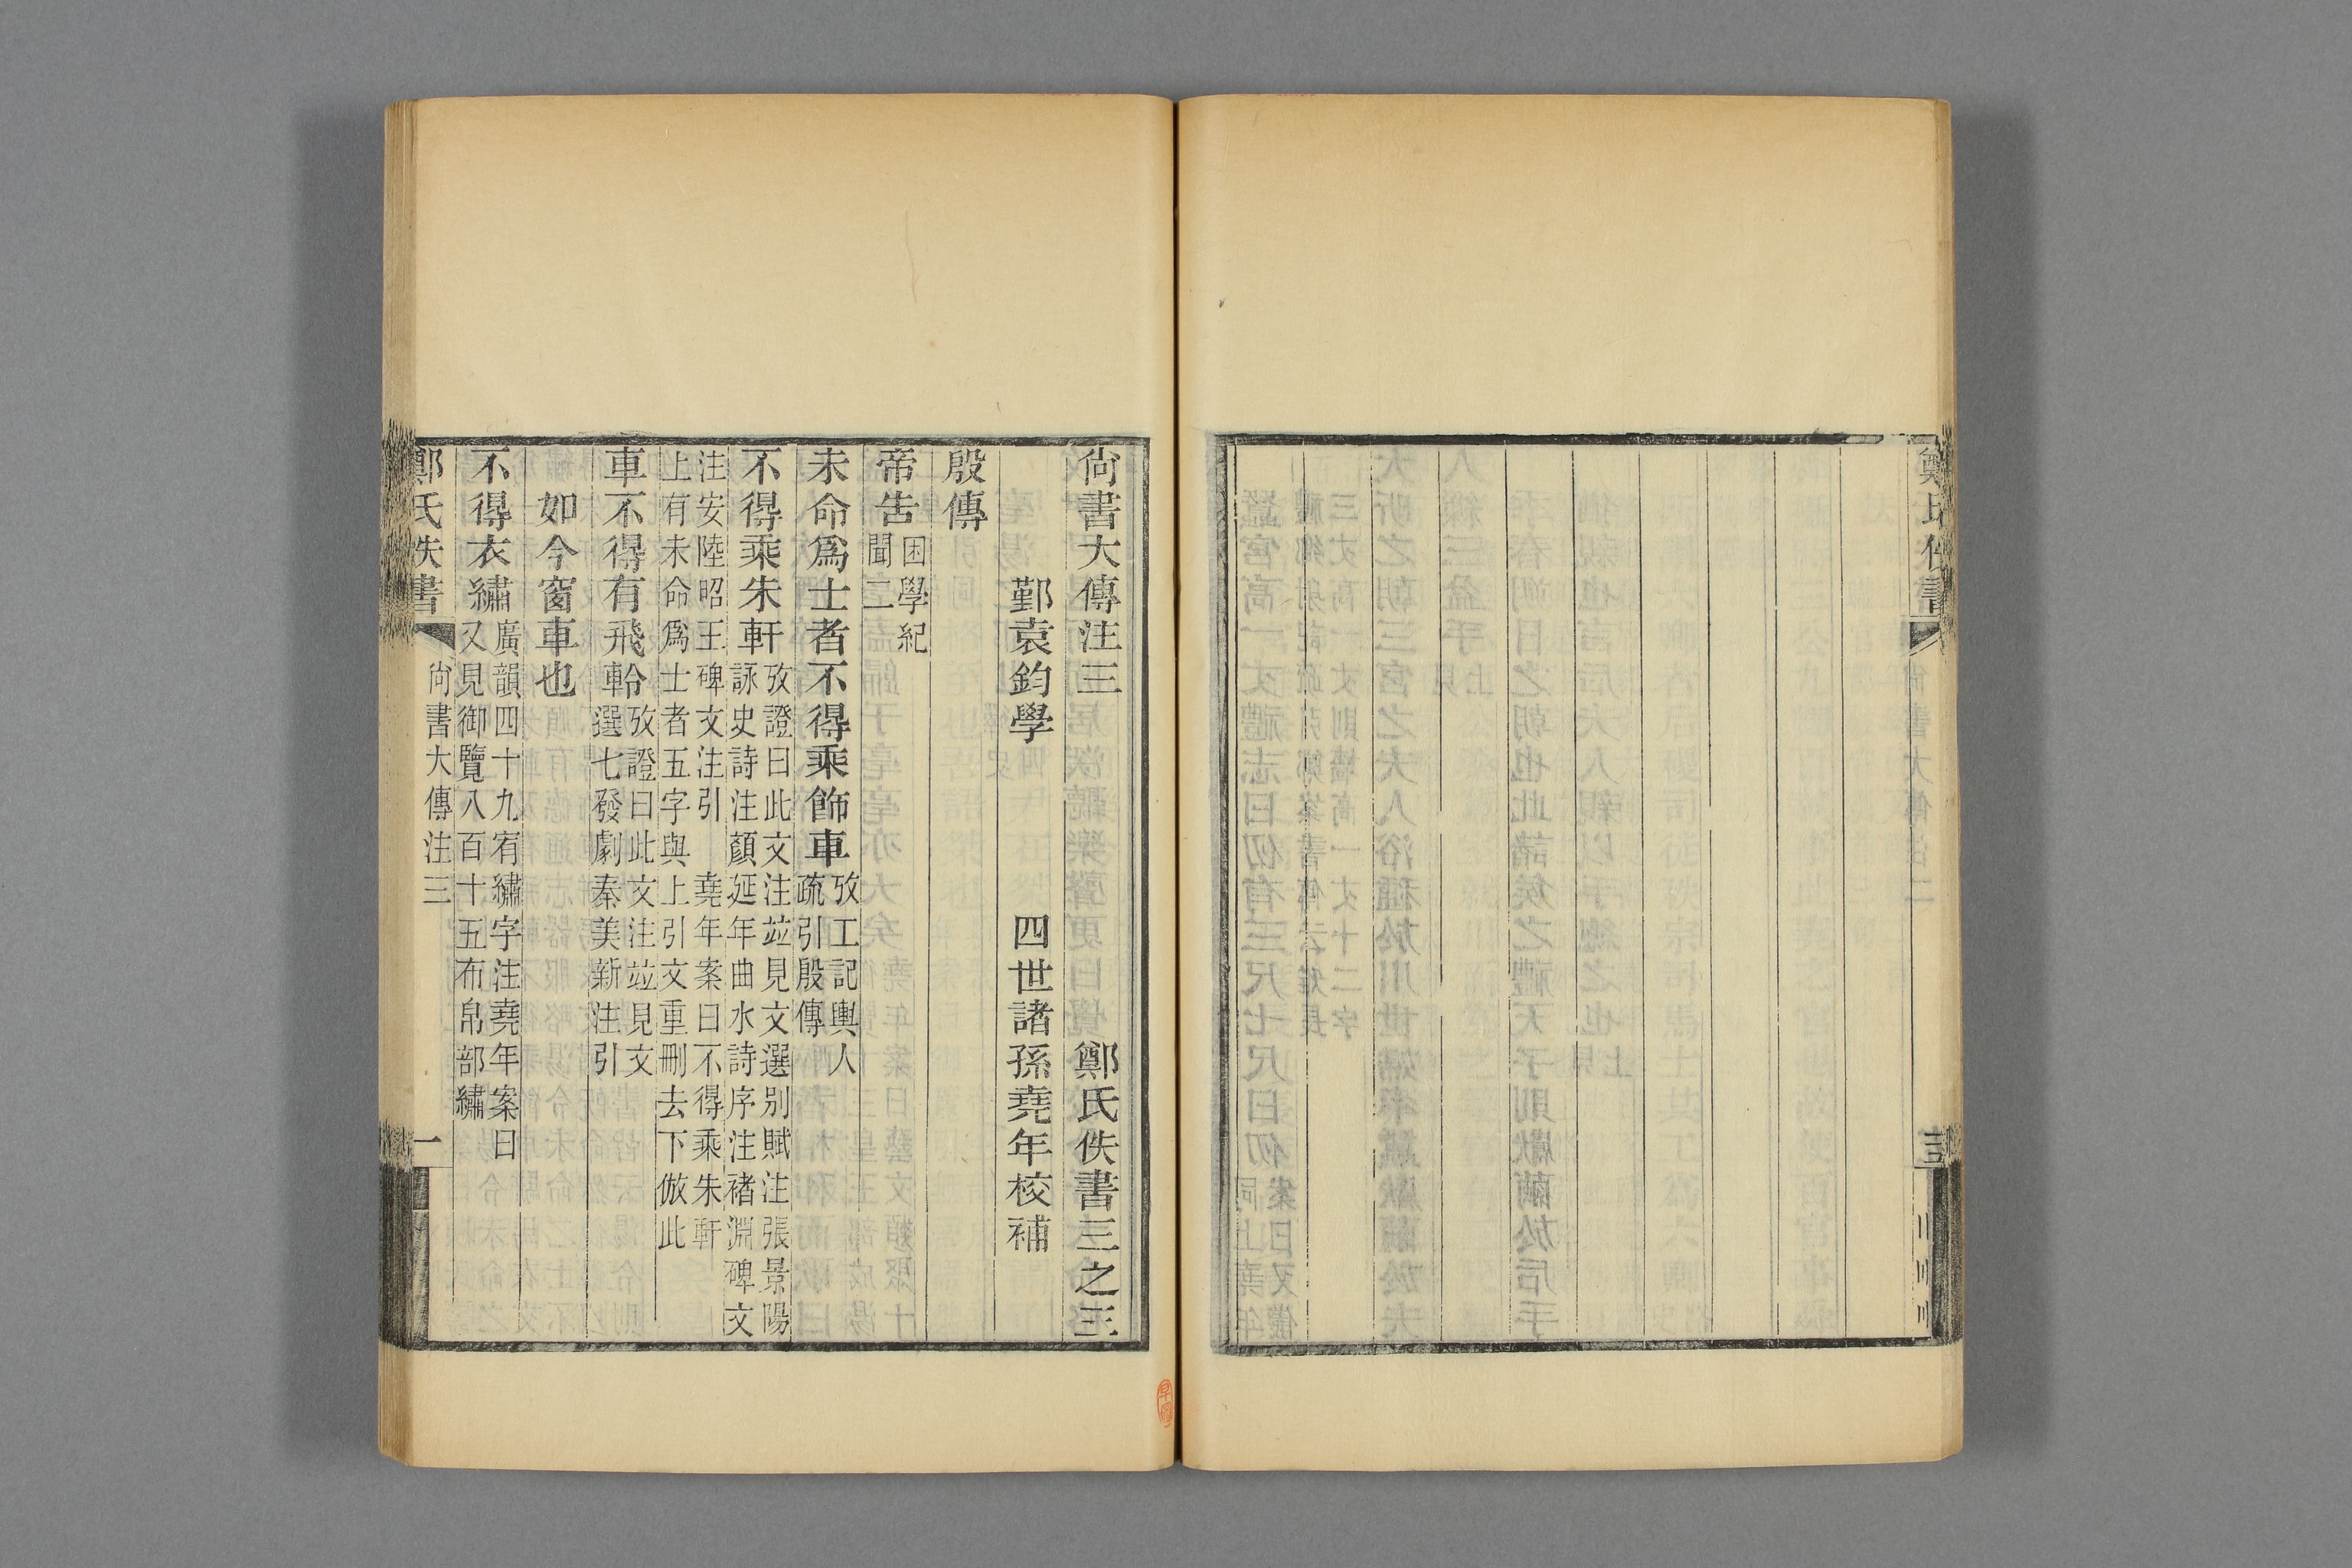 尙書大傳注三　鄭氏佚書三之三
鄞袁鈞學　四世諸孫堯年校補
殷傳
帝告
困學紀
聞二
未命爲士者不得乘飾車
攷工記輿人
疏引殷傳
不得乘朱軒
攷證曰此文注竝見文選别賦注張景陽
詠史詩注顏延年曲水詩序注褚淵碑文
注安陸昭王碑文注引　堯年案曰不得乘朱軒
上有未命爲士者五字與上引文重刪去下倣此
車不得有飛軨
攷證曰此文注竝見文
選七發劇秦美新注引
如今窗車也
不得衣繡
廣韻四十九宥繡字注堯年案曰
又見御覽八百十五布帛部繡
鄭氏佚書
尙書大傳注三
一